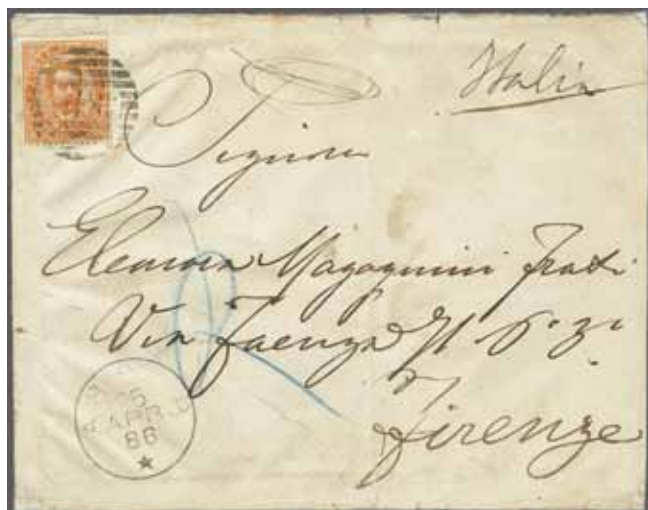 Italia
Signora
Eleonora Magagnini Frati
Via Faenza 71 P. 3°
Firenze
5
APR
86